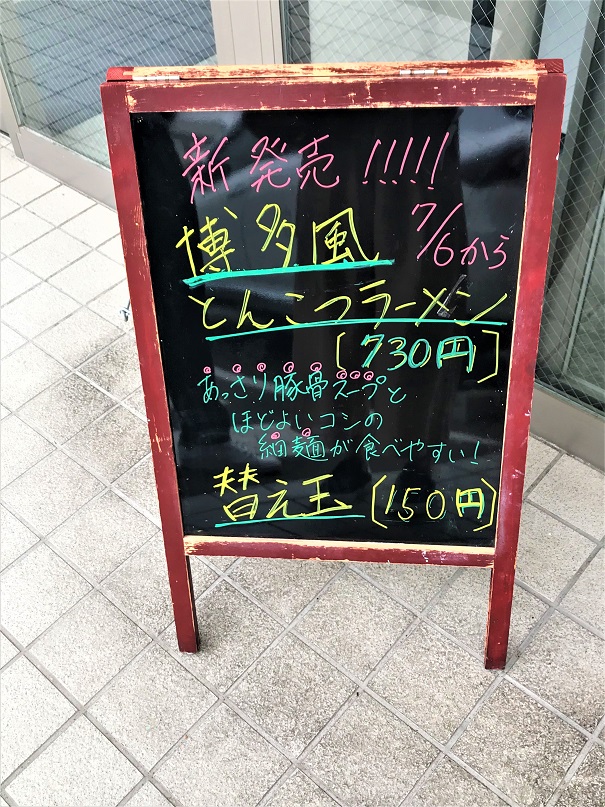 新発売!!!!!
7/6から
博多風
とんこつラーメン
[730円]
あっさり豚骨スープと
ほどよいコシの
細麺が食べやすい!
替え玉[150円]